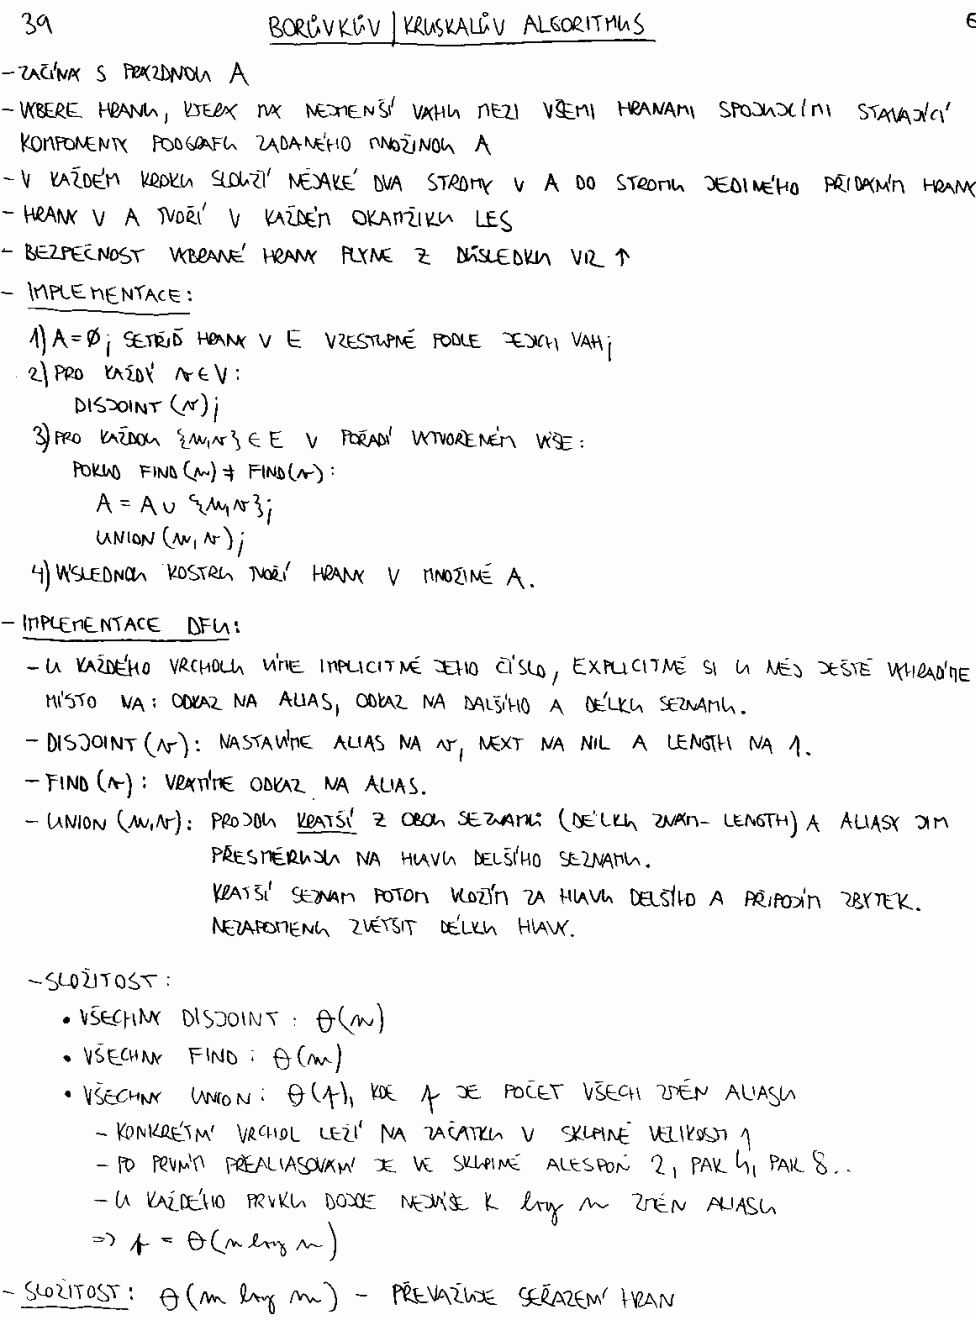 39 BORŮVKŮV | KRUSKALŮV ALGORITMUS 6
- ZAČÍNÁ S PRÁZDNOU A
- VYBERE HRANU, KTERÁ MÁ NEJMENŠÍ VÁHU MEZI VŠEMI HRANAMI SPOJUJÍCÍMI STÁVAJÍCÍ
KOMPONENTY PODGRAFU ZADANÉHO MNOŽINOU A
- V KAŽDÉM KROKU SLOUČÍ NĚJAKÉ DVA STROMY V A DO STROMU JEDINÉHO PŘIDÁNÍM HRANY
- HRANY V A TVOŘÍ V KAŽDÉM OKAMŽIKU LES
- BEZPEČNOST VYBRANÉ HRANY PLYNE Z DŮSLEDKU VIZ ↑
- IMPLEMENTACE:
1) A = Ø; SETŘIĎ HRANY V E VZESTUPNĚ PODLE JEJICH VAH;
2) PRO KAŽDÝ v ∈ V:
DISJOINT (v);
3) PRO KAŽDOU {u,v} ∈ E V POŘADÍ VYTVOŘENÉM VÝŠE:
POKUD FIND (u) ≠ FIND (v):
A = A ∪ {u,v};
UNION (u, v);
4) VÝSLEDNOU KOSTRU TVOŘÍ HRANY V MNOŽINĚ A.
- IMPLEMENTACE DFU:
- U KAŽDÉHO VRCHOLU VÍME IMPLICITNĚ JEHO ČÍSLO, EXPLICITNĚ SI U NĚJ JEŠTĚ VYHRADÍME
MÍSTO NA: ODKAZ NA ALIAS, ODKAZ NA DALŠÍHO A DÉLKU SEZNAMU.
- DISJOINT (v): NASTAVÍME ALIAS NA v, NEXT NA NIL A LENGTH NA 1.
- FIND (v): VRÁTÍME ODKAZ NA ALIAS.
- UNION (u,v): PROJDU KRATŠÍ Z OBOU SEZNAMŮ (DÉLKU ZNÁM - LENGTH) A ALIASY JIM
PŘESMĚRUJU NA HLAVU DELŠÍHO SEZNAMU.
KRATŠÍ SEZNAM POTOM VLOŽÍM ZA HLAVU DELŠÍHO A PŘIPOJÍM ZBYTEK.
NEZAPOMENU ZVĚTŠIT DÉLKU HLAVY.
- SLOŽITOST:
• VŠECHNY DISJOINT: Θ(n)
• VŠECHNY FIND: Θ(m)
• VŠECHNY UNION: Θ(p), KDE p JE POČET VŠECH ZMĚN ALIASU
- KONKRÉTNÍ VRCHOL LEŽÍ NA ZAČÁTKU V SKUPINĚ VELIKOSTI 1
- PO PRVNÍM PŘEALIASOVÁNÍ JE VE SKUPINĚ ALESPOŇ 2, PAK 4, PAK 8..
- U KAŽDÉHO PRVKU DOJDE NEJVÝŠE K log n ZMĚN ALIASU
=> p = Θ(n log n)
- SLOŽITOST: Θ(m log m) - PŘEVAŽUJE SEŘAZENÍ HRAN